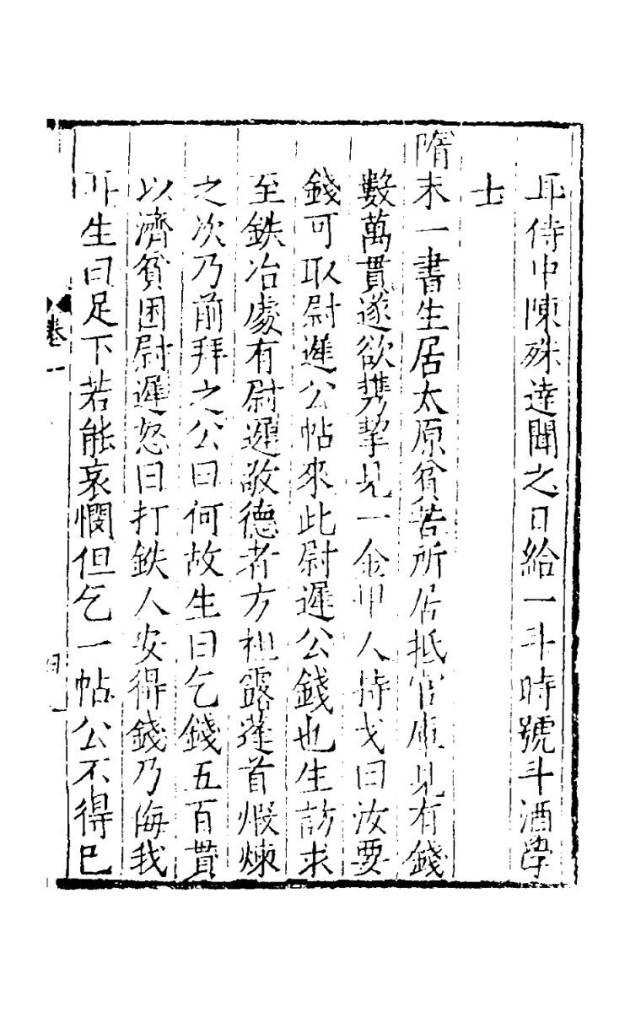 耳侍中陳殊達聞之日給一斗時號斗酒學
士
隋末一書生居太原貧苦所居抵官庫見有錢
數萬貫遂欲携挈見一金甲人持戈曰汝要
錢可取尉遲公帖來此尉遲公錢也生訪求
至鉄冶處有尉遲敬德者方袒露蓬首煅煉
之次乃前拜之公曰何故生曰乞錢五百貫
以濟貧困尉遲怒曰打鉄人安得錢乃侮我
耳生曰足下若能哀憫但乞一帖公不得已
卷一
四